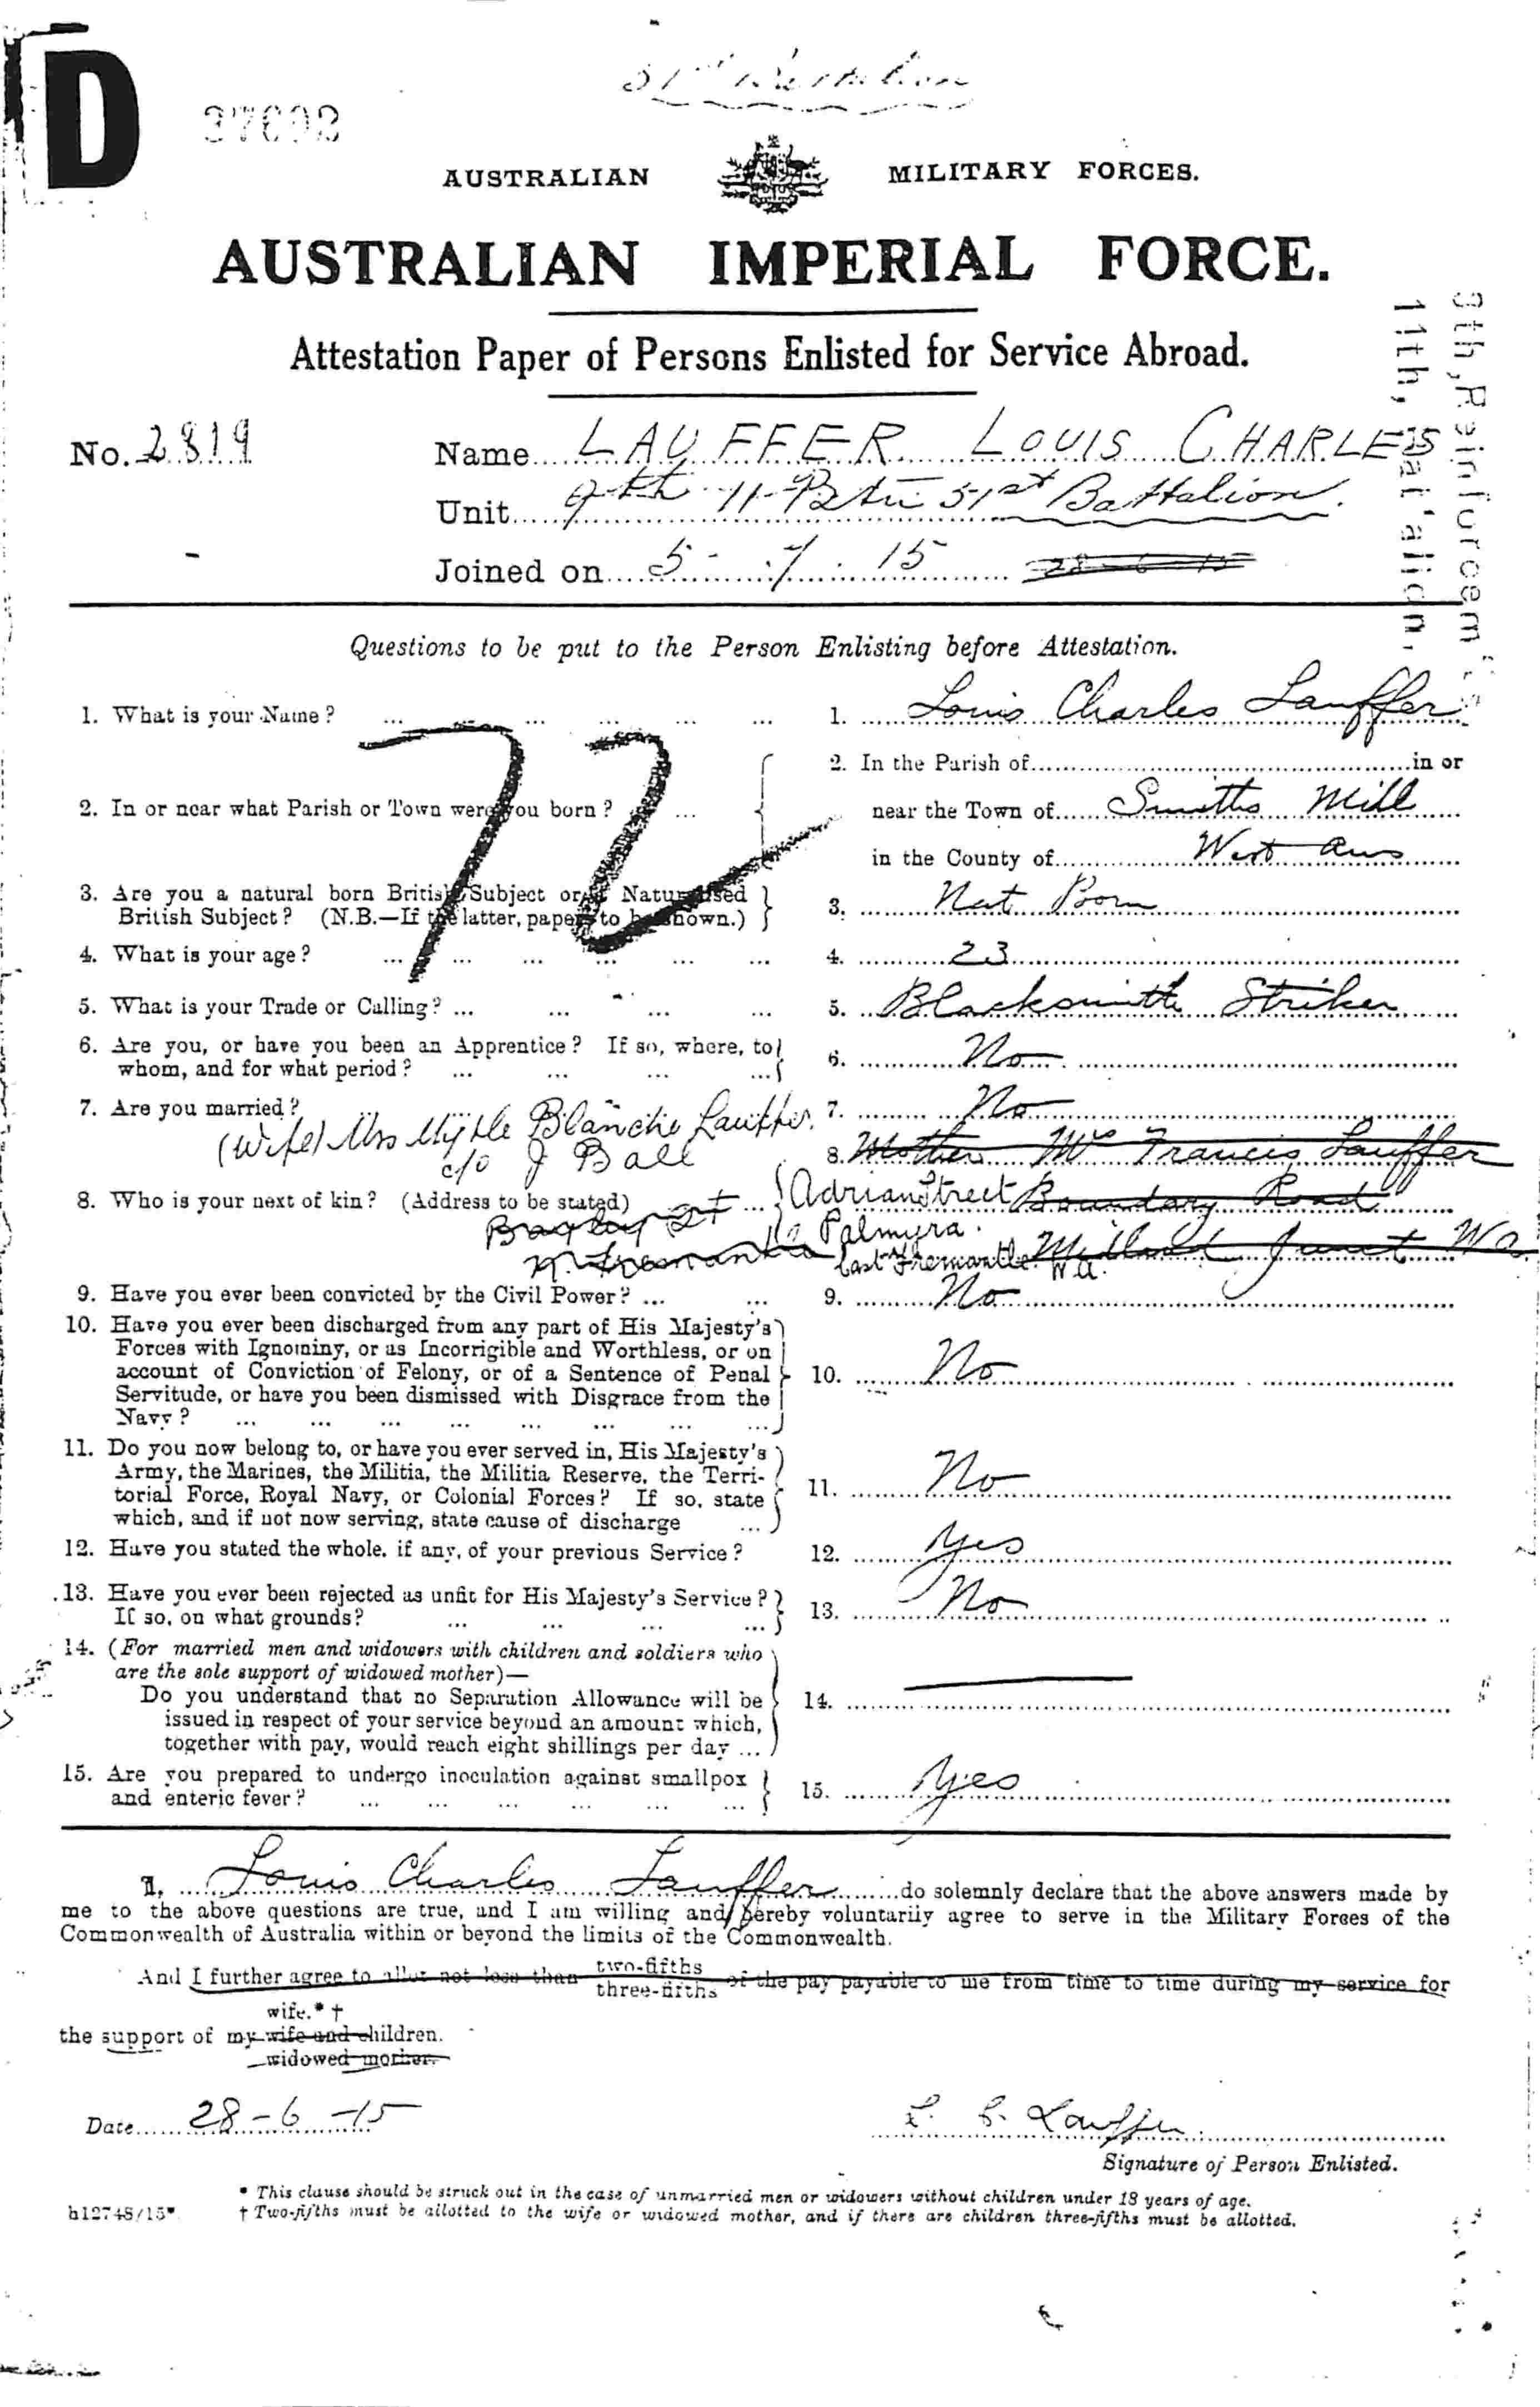 D
37692
51st Battalion
AUSTRALIAN MILITARY FORCES.
AUSTRALIAN IMPERIAL FORCE.
Attestation Paper of Persons Enlisted for Service Abroad.
9th, Reinforcem
11th, Bat'alion.
No. 2819 Name LAUFFER LOUIS CHARLES
Unit 9th 11 Battn 51st Battalion.
Joined on 5 - 7 - 15 28-6-15
Questions to be put to the Person Enlisting before Attestation.
72
1. What is your Name? ... 1. Louis Charles Lauffer
2. In or near what Parish or Town were you born? ... 2. In the Parish of in or
near the Town of Smiths Mill
in the County of West Aus
3. Are you a natural born British Subject or a Naturalised
British Subject? (N.B.—If the latter, papers to be shown.) 3. Nat Born
4. What is your age? ... 4. 23
5. What is your Trade or Calling? ... 5. Blacksmiths Striker
6. Are you, or have you been an Apprentice? If so, where, to
whom, and for what period? ... 6. No
7. Are you married? 7. No
(Wife) Mrs Myrtle Blanche Lauffer.
c/o J Ball
8. Mother Mrs Francis Lauffer
8. Who is your next of kin? (Address to be stated) ... Adrian Street Boundary Road
Bagley St
Palmyra.
N. Fremantle
East Fremantle W.A. Midland Junct WA
9. Have you ever been convicted by the Civil Power? ... 9. No
10. Have you ever been discharged from any part of His Majesty's
Forces with Ignominy, or as Incorrigible and Worthless, or on
account of Conviction of Felony, or of a Sentence of Penal 10. No
Servitude, or have you been dismissed with Disgrace from the
Navy? ...
11. Do you now belong to, or have you ever served in, His Majesty's
Army, the Marines, the Militia, the Militia Reserve, the Terri-
torial Force, Royal Navy, or Colonial Forces? If so, state 11. No
which, and if not now serving, state cause of discharge ...
12. Have you stated the whole, if any, of your previous Service? 12. Yes
13. Have you ever been rejected as unfit for His Majesty's Service?
If so, on what grounds? ... 13. No
14. (For married men and widowers with children and soldiers who
are the sole support of widowed mother)—
Do you understand that no Separation Allowance will be 14.
issued in respect of your service beyond an amount which,
together with pay, would reach eight shillings per day ...
15. Are you prepared to undergo inoculation against smallpox
and enteric fever? ... 15. Yes
I, Louis Charles Lauffer do solemnly declare that the above answers made by
me to the above questions are true, and I am willing and hereby voluntarily agree to serve in the Military Forces of the
Commonwealth of Australia within or beyond the limits of the Commonwealth.
And I further agree to allot not less than two-fifths
three-fifths of the pay payable to me from time to time during my service for
wife.* †
the support of my wife and children.
widowed mother.
Date 28-6-15
L. C. Lauffer
Signature of Person Enlisted.
* This clause should be struck out in the case of unmarried men or widowers without children under 18 years of age.
h12748/15* † Two-fifths must be allotted to the wife or widowed mother, and if there are children three-fifths must be allotted.